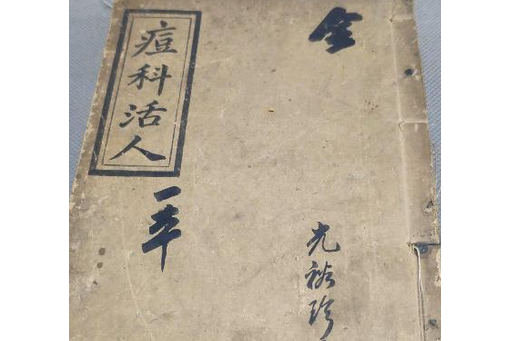 全
光裕珍
痘科活人
一本